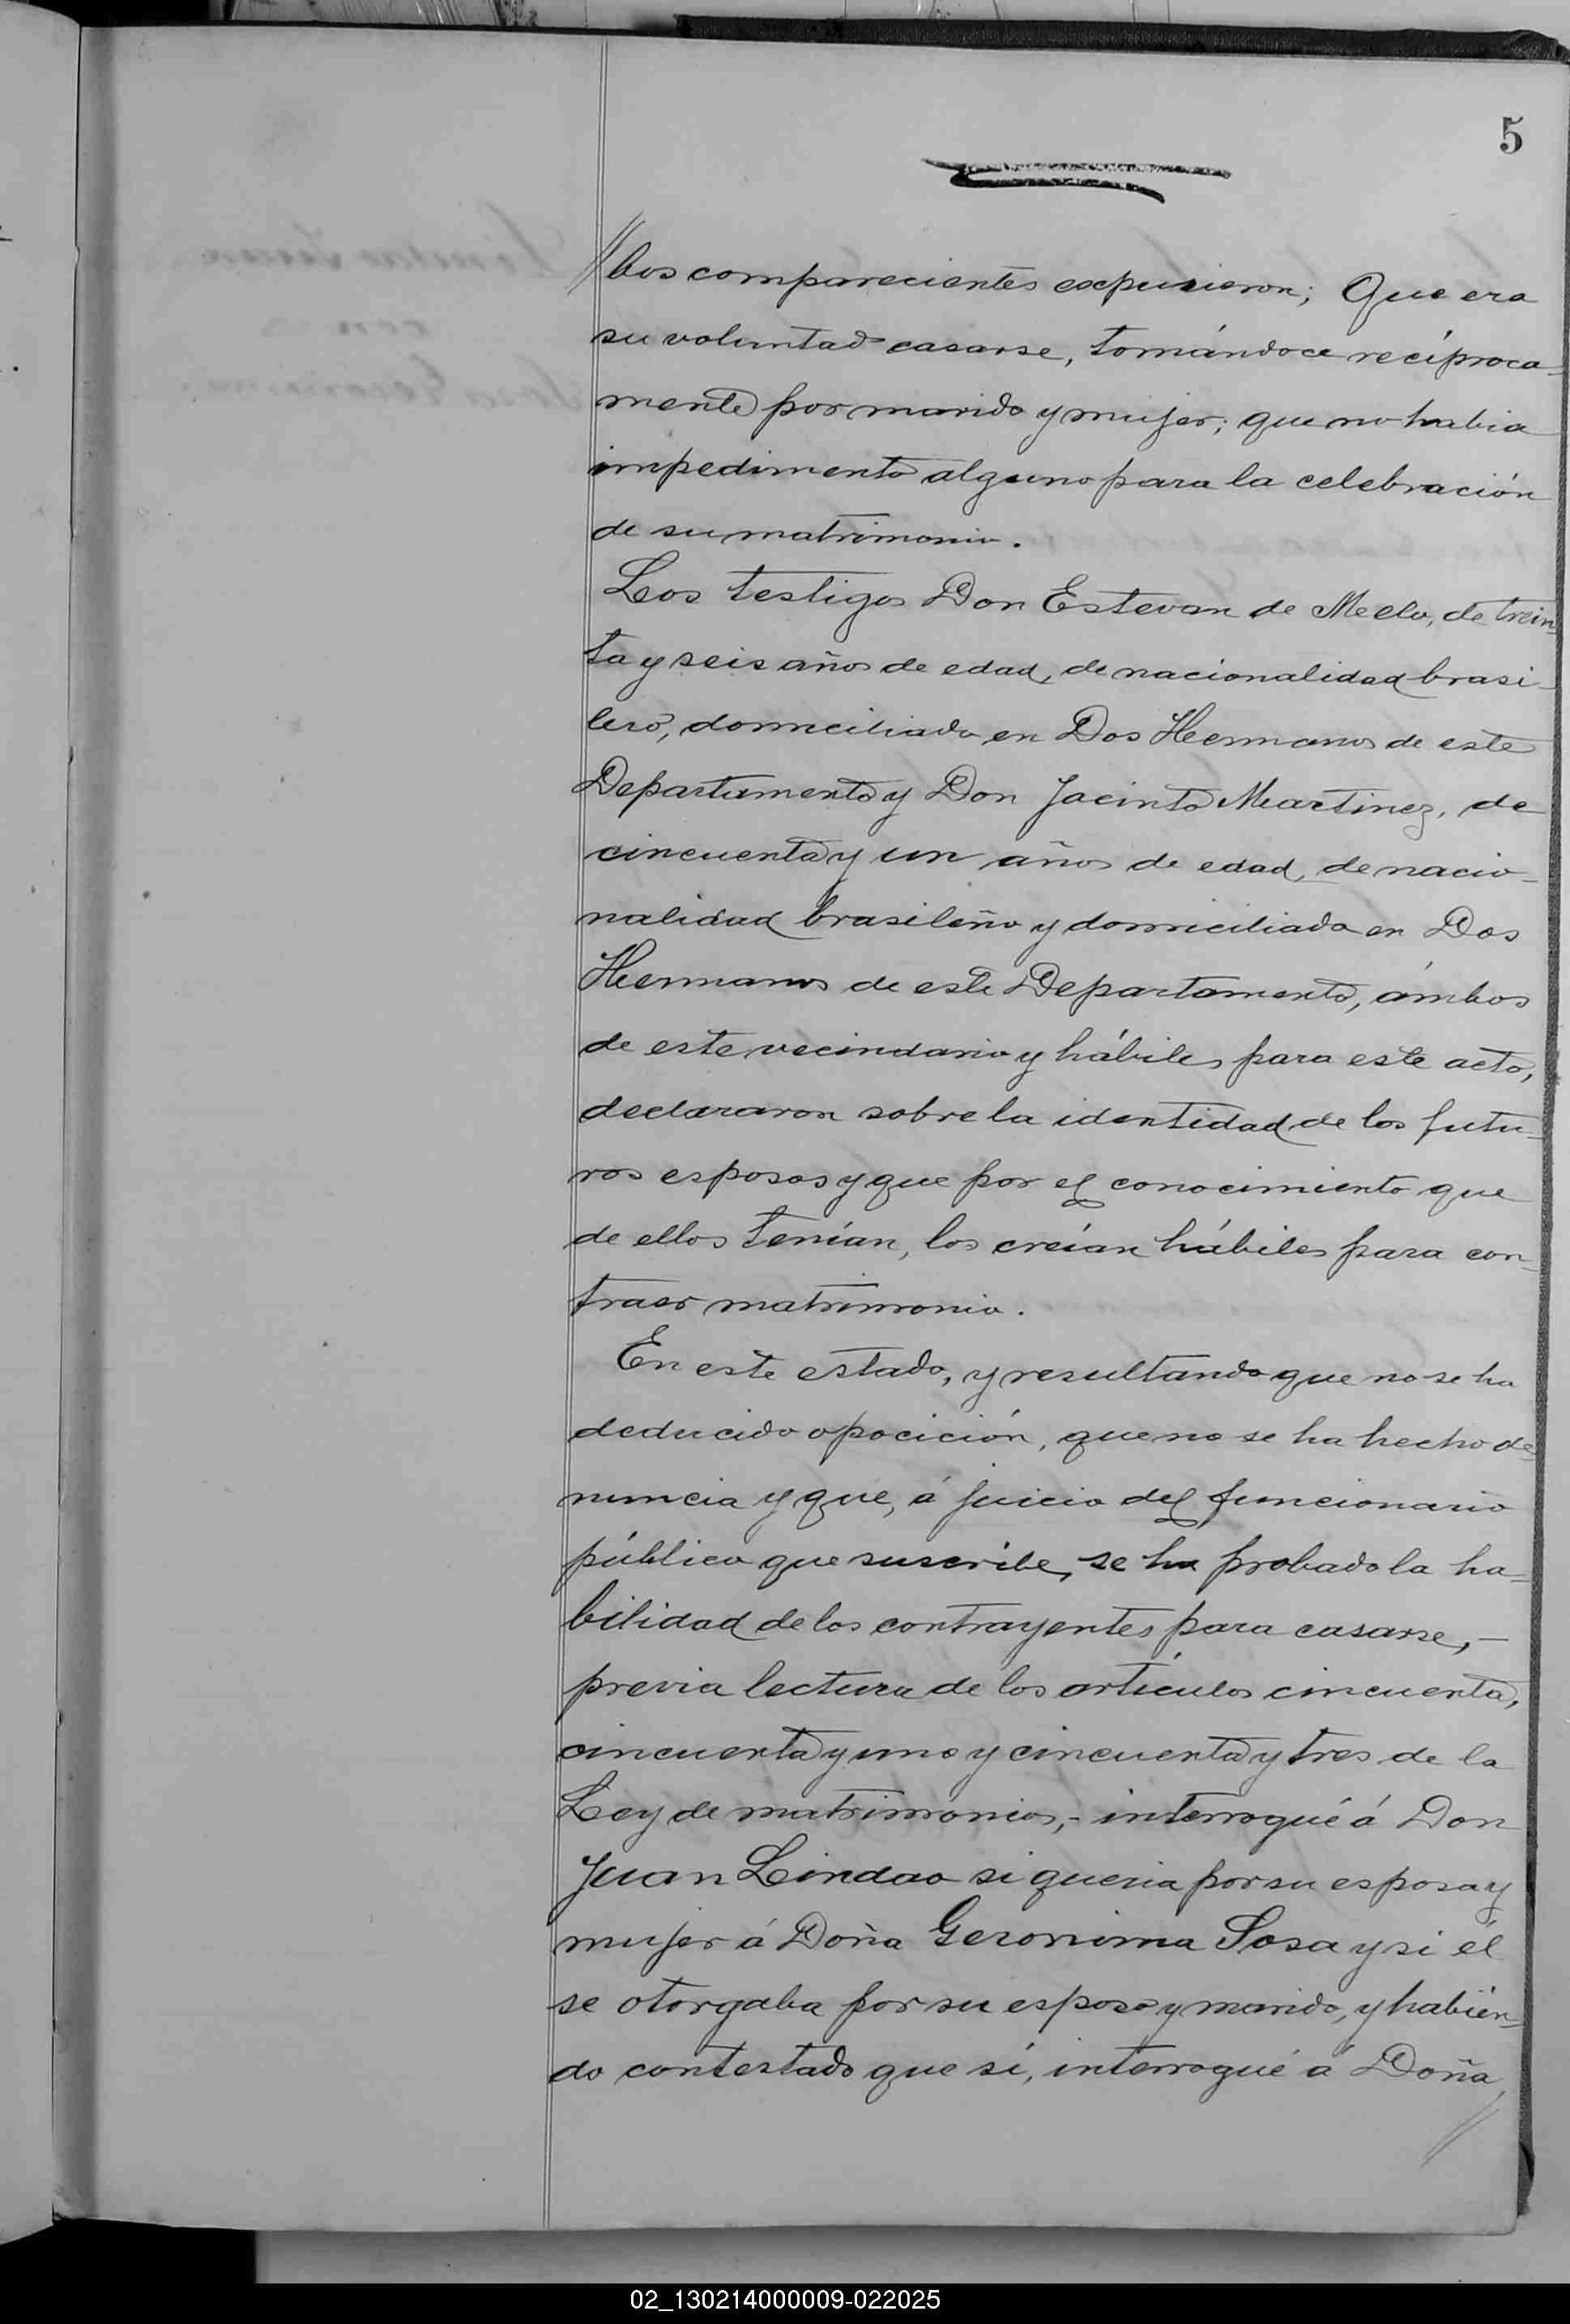 5
// Los comparecientes expusieron; Que era
su voluntad casarse, tomándoce recíproca-
mente por marido y mujer; que no habia
impedimento alguno para la celebración
de su matrimonio.
Los testigos Don Estevan de Mello, de trein-
ta y seis años de edad, de nacionalidad brasi-
lero, domiciliado en Dos Hermanos de este
Departamento y Don Jacinto Martinez, de
cincuenta y un años de edad, de nacio-
nalidad brasileño y domiciliado en Dos
Hermanos de este Departamento, ámbos
de este vecindario y hábiles para este acto,
declararon sobre la identidad de los futu-
ros esposos y que por el conocimiento que
de ellos tenían, los creían hábiles para con-
traer matrimonio.
En este estado, y resultando que no se ha
deducido oposición, que no se ha hecho de-
nuncia y que, á juicio del funcionario
público que suscribe, se ha probado la ha-
bilidad de los contrayentes para casarse, -
previa lectura de los artículos cincuenta,
cincuenta y uno y cincuenta y tres de la
Ley de matrimonios,- interrogué á Don
Juan Lindao si queria por su esposa y
mujer á Doña Geronima Sosa y si él
se otorgaba por su esposo y marido, y habién-
do contestado que sí, interrogué á Doña
//
02_130214000009-022025